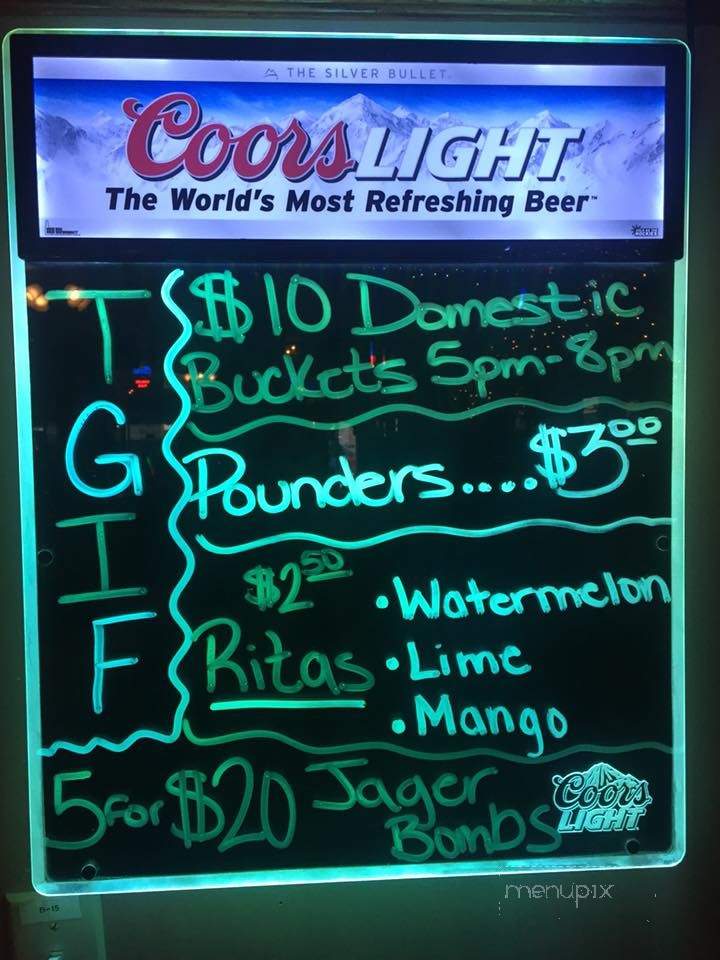 THE SILVER BULLET
Coors LIGHT
The World's Most Refreshing Beer™
TGIF
$10 Domestic
Buckets 5pm-8pm
Pounders.....$3.00
$2.50
Ritas
•Watermelon
•Lime
•Mango
5 FOR $20 Jager
Bombs
Coors
LIGHT
menupix